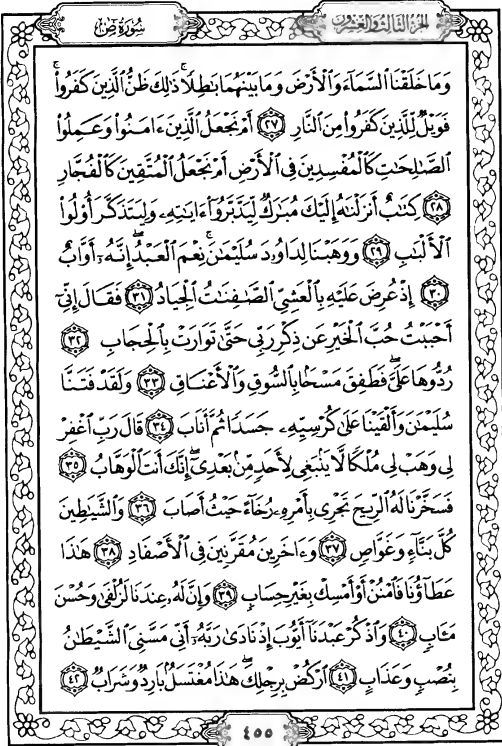 سُورَةُ صٓ
الجزء الثالث والعشرون
وَمَا خَلَقْنَا ٱلسَّمَآءَ وَٱلْأَرْضَ وَمَا بَيْنَهُمَا بَٰطِلًا ۚ ذَٰلِكَ ظَنُّ ٱلَّذِينَ كَفَرُوا۟ ۚ
فَوَيْلٌ لِّلَّذِينَ كَفَرُوا۟ مِنَ ٱلنَّارِ ٢٧ أَمْ نَجْعَلُ ٱلَّذِينَ ءَامَنُوا۟ وَعَمِلُوا۟
ٱلصَّٰلِحَٰتِ كَٱلْمُفْسِدِينَ فِى ٱلْأَرْضِ أَمْ نَجْعَلُ ٱلْمُتَّقِينَ كَٱلْفُجَّارِ
٢٨ كِتَٰبٌ أَنزَلْنَٰهُ إِلَيْكَ مُبَٰرَكٌ لِّيَدَّبَّرُوٓا۟ ءَايَٰتِهِۦ وَلِيَتَذَكَّرَ أُو۟لُوا۟
ٱلْأَلْبَٰبِ ٢٩ وَوَهَبْنَا لِدَاوُۥدَ سُلَيْمَٰنَ ۚ نِعْمَ ٱلْعَبْدُ ۖ إِنَّهُۥٓ أَوَّابٌ
٣٠ إِذْ عُرِضَ عَلَيْهِ بِٱلْعَشِىِّ ٱلصَّٰفِنَٰتُ ٱلْجِيَادُ ٣١ فَقَالَ إِنِّىٓ
أَحْبَبْتُ حُبَّ ٱلْخَيْرِ عَن ذِكْرِ رَبِّى حَتَّىٰ تَوَارَتْ بِٱلْحِجَابِ ٣٢
رُدُّوهَا عَلَىَّ ۖ فَطَفِقَ مَسْحًۢا بِٱلسُّوقِ وَٱلْأَعْنَاقِ ٣٣ وَلَقَدْ فَتَنَّا
سُلَيْمَٰنَ وَأَلْقَيْنَا عَلَىٰ كُرْسِيِّهِۦ جَسَدًا ثُمَّ أَنَابَ ٣٤ قَالَ رَبِّ ٱغْفِرْ
لِى وَهَبْ لِى مُلْكًا لَّا يَنۢبَغِى لِأَحَدٍ مِّنۢ بَعْدِىٓ ۖ إِنَّكَ أَنتَ ٱلْوَهَّابُ ٣٥
فَسَخَّرْنَا لَهُ ٱلرِّيحَ تَجْرِى بِأَمْرِهِۦ رُخَآءً حَيْثُ أَصَابَ ٣٦ وَٱلشَّيَٰطِينَ
كُلَّ بَنَّآءٍ وَغَوَّاصٍ ٣٧ وَءَاخَرِينَ مُقَرَّنِينَ فِى ٱلْأَصْفَادِ ٣٨ هَٰذَا
عَطَآؤُنَا فَٱمْنُنْ أَوْ أَمْسِكْ بِغَيْرِ حِسَابٍ ٣٩ وَإِنَّ لَهُۥ عِندَنَا لَزُلْفَىٰ وَحُسْنَ
مَـَٔابٍ ٤٠ وَٱذْكُرْ عَبْدَنَآ أَيُّوبَ إِذْ نَادَىٰ رَبَّهُۥٓ أَنِّى مَسَّنِىَ ٱلشَّيْطَٰنُ
بِنُصْبٍ وَعَذَابٍ ٤١ ٱرْكُضْ بِرِجْلِكَ ۖ هَٰذَا مُغْتَسَلٌۢ بَارِدٌ وَشَرَابٌ ٤٢
٤٥٥